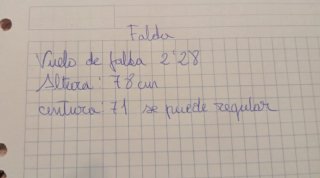 Falda
Vuelo de falda 2'28
Altura: 78 cm
centura: 71 se puede regular